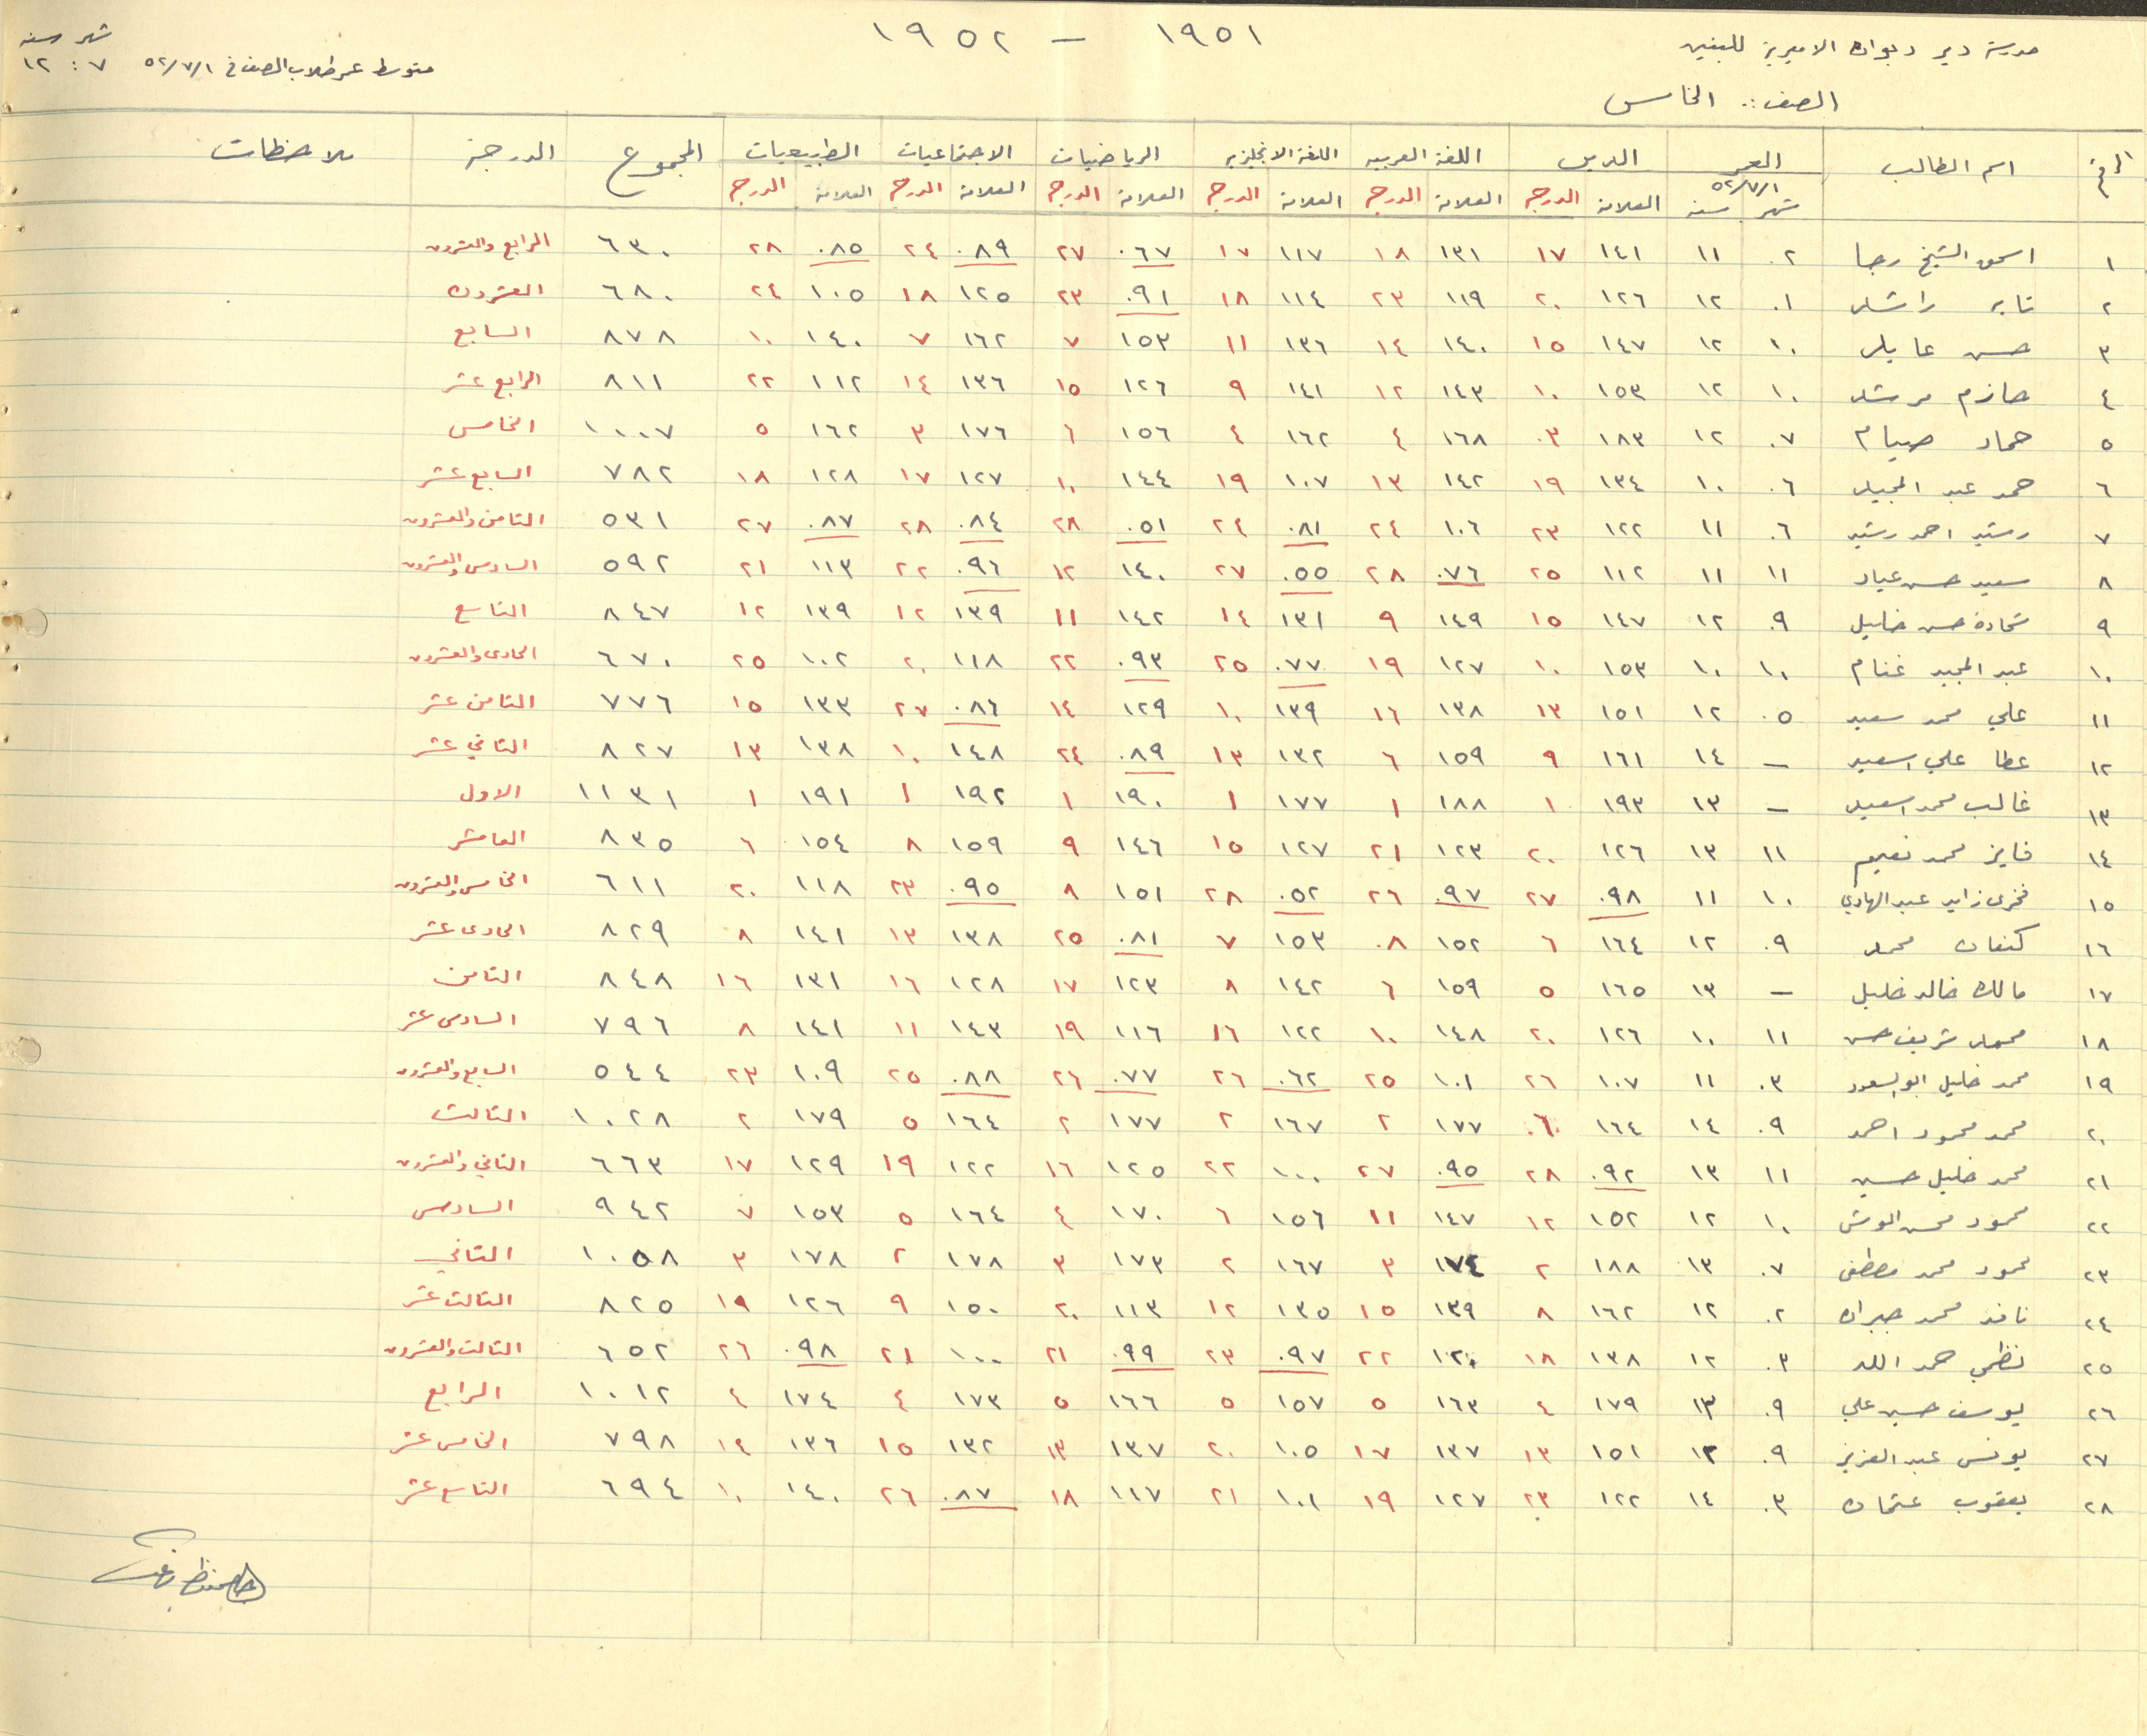 ١٩٥١ – ١٩٥٢
مدرسة دير ديوان الاميرية للبنين
متوسط عمر طلاب الصف في ٥٢/٧/١
شهر سنه
٧ : ١٢
الصف :. الخامس
الرقم | اسم الطالب | العمر ٥٢/٧/١ | الدين | اللغة العربيه | اللغة الانجليزيه | الرياضيات | الاجتماعيات | الطبيعيات | المجموع | الدرجة | ملاحظات
شهر | سنه | العلامة | الدرجة | العلامة | الدرجة | العلامة | الدرجة | العلامة | الدرجة | العلامة | الدرجة | العلامة | الدرجة
١ | اسحق الشيخ رجا | ٠٢ | ١١ | ١٤١ | ١٧ | ١٣١ | ١٨ | ١١٧ | ١٧ | ٠٦٧ | ٢٧ | ٠٨٩ | ٢٤ | ٠٨٥ | ٢٨ | ٦٣٠ | الرابع والعشرون
٢ | راشد | ٠١ | ١٢ | ١٢٦ | ٢٠ | ١١٩ | ٢٣ | ١١٤ | ١٨ | ٠٩١ | ٢٣ | ١٢٥ | ١٨ | ١٠٥ | ٢٤ | ٦٨٠ | العشرون
٣ | حسن عايد | ١٠ | ١٢ | ١٤٧ | ١٥ | ١٤٠ | ١٤ | ١٣٦ | ١١ | ١٥٣ | ٧ | ١٦٢ | ٧ | ١٤٠ | ١٠ | ٨٧٨ | السابع
٤ | حازم مرشد | ١٠ | ١٢ | ١٥٣ | ١٠ | ١٤٣ | ١٢ | ١٤١ | ٩ | ١٢٦ | ١٥ | ١٣٦ | ١٤ | ١١٢ | ٢٢ | ٨١١ | الرابع عشر
٥ | حماد صيام | ٠٧ | ١٢ | ١٨٣ | ٠٣ | ١٦٨ | ٤ | ١٦٢ | ٤ | ١٥٦ | ٦ | ١٧٦ | ٣ | ١٦٢ | ٥ | ١٠٠٧ | الخامس
٦ | حمد عبد المجيد | ٠٦ | ١٠ | ١٣٤ | ١٩ | ١٤٢ | ١٣ | ١٠٧ | ١٩ | ١٤٤ | ١٠ | ١٢٧ | ١٧ | ١٢٨ | ١٨ | ٧٨٢ | السابع عشر
٧ | رشيد احمد رشيد | ٠٦ | ١١ | ١٢٢ | ٢٣ | ١٠٦ | ٢٤ | ٠٨١ | ٢٤ | ٠٥١ | ٢٨ | ٠٨٤ | ٢٨ | ٠٨٧ | ٢٧ | ٥٣١ | الثامن والعشرون
٨ | سعيد حسن عياد | ١١ | ١١ | ١١٢ | ٢٥ | ٠٧٦ | ٢٨ | ٠٥٥ | ٢٧ | ١٤٠ | ١٢ | ٠٩٦ | ٢٢ | ١١٣ | ٢١ | ٥٩٢ | السادس والعشرون
٩ | شحادة حسن خليل | ٠٩ | ١٢ | ١٤٧ | ١٥ | ١٤٩ | ٩ | ١٣١ | ١٤ | ١٤٢ | ١١ | ١٣٩ | ١٢ | ١٣٩ | ١٢ | ٨٤٧ | التاسع
١٠ | عبد المجيد غنام | ١٠ | ١٠ | ١٥٣ | ١٠ | ١٢٧ | ١٩ | ٠٧٧ | ٢٥ | ٠٩٣ | ٢٢ | ١١٨ | ٢٠ | ١٠٢ | ٢٥ | ٦٧٠ | الحادى والعشرون
١١ | علي محمد سعيد | ٠٥ | ١٢ | ١٥١ | ١٣ | ١٣٨ | ١٦ | ١٣٩ | ١٠ | ١٢٩ | ١٤ | ٠٨٦ | ٢٧ | ١٣٣ | ١٥ | ٧٧٦ | الثامن عشر
١٢ | عطا علي اسعيد | – | ١٤ | ١٦١ | ٩ | ١٥٩ | ٦ | ١٣٢ | ١٣ | ٠٨٩ | ٢٤ | ١٤٨ | ١٠ | ١٣٨ | ١٣ | ٨٢٧ | الثاني عشر
١٣ | غالب محمد اسعيد | – | ١٣ | ١٩٣ | ١ | ١٨٨ | ١ | ١٧٧ | ١ | ١٩٠ | ١ | ١٩٢ | ١ | ١٩١ | ١ | ١١٣١ | الاول
١٤ | فايز محمد نعيم | ١١ | ١٣ | ١٢٦ | ٢٠ | ١٢٣ | ٢١ | ١٢٧ | ١٥ | ١٤٦ | ٩ | ١٥٩ | ٨ | ١٥٤ | ٦ | ٨٣٥ | العاشر
١٥ | فخرى زايد عبد الهادي | ١٠ | ١١ | ٠٩٨ | ٢٧ | ٠٩٧ | ٢٦ | ٠٥٢ | ٢٨ | ١٥١ | ٨ | ٠٩٥ | ٢٣ | ١١٨ | ٢٠ | ٦١١ | الخامس والعشرون
١٦ | كنعان محمد | ٠٩ | ١٢ | ١٦٤ | ٦ | ١٥٢ | ٠٨ | ١٥٣ | ٧ | ٠٨١ | ٢٥ | ١٣٨ | ١٣ | ١٤١ | ٨ | ٨٢٩ | الحادى عشر
١٧ | مالك خالد خليل | – | ١٣ | ١٦٥ | ٥ | ١٥٩ | ٦ | ١٤٢ | ٨ | ١٢٣ | ١٧ | ١٢٨ | ١٦ | ١٣١ | ١٦ | ٨٤٨ | الثامن
١٨ | محمد شريف حسن | ١١ | ١٠ | ١٢٦ | ٢٠ | ١٤٨ | ١٠ | ١٢٢ | ١٦ | ١١٦ | ١٩ | ١٤٣ | ١١ | ١٤١ | ٨ | ٧٩٦ | السادس عشر
١٩ | محمد خليل ابو السعود | ٠٣ | ١١ | ١٠٧ | ٢٦ | ١٠١ | ٢٥ | ٠٦٢ | ٢٦ | ٠٧٧ | ٢٦ | ٠٨٨ | ٢٥ | ١٠٩ | ٢٣ | ٥٤٤ | السابع والعشرون
٢٠ | محمد محمود احمد | ٠٩ | ١٤ | ١٦٤ | ٠٦ | ١٧٧ | ٢ | ١٦٧ | ٢ | ١٧٧ | ٢ | ١٦٤ | ٥ | ١٧٩ | ٢ | ١٠٢٨ | الثالث
٢١ | محمد خليل حسين | ١١ | ١٣ | ٠٩٢ | ٢٨ | ٠٩٥ | ٢٧ | ١٠٠ | ٢٢ | ١٢٥ | ١٦ | ١٢٢ | ١٩ | ١٢٩ | ١٧ | ٦٦٣ | الثاني والعشرون
٢٢ | محمود محسن الوش | ١٠ | ١٢ | ١٥٢ | ١٢ | ١٤٧ | ١١ | ١٥٦ | ٦ | ١٧٠ | ٤ | ١٦٤ | ٥ | ١٥٣ | ٧ | ٩٤٢ | السادس
٢٣ | محمود محمد مصطفى | ٠٧ | ١٣ | ١٨٨ | ٢ | ١٧٤ | ٣ | ١٦٧ | ٢ | ١٧٣ | ٣ | ١٧٨ | ٢ | ١٧٨ | ٣ | ١٠٥٨ | الثاني
٢٤ | نافذ محمد جبران | ٠٢ | ١٢ | ١٦٢ | ٨ | ١٣٩ | ١٥ | ١٣٥ | ١٢ | ١١٣ | ٢٠ | ١٥٠ | ٩ | ١٢٦ | ١٩ | ٨٢٥ | الثالث عشر
٢٥ | نظمي حمد الله | ٠٣ | ١٢ | ١٣٨ | ١٨ | ١٢٠ | ٢٢ | ٠٩٧ | ٢٣ | ٠٩٩ | ٢١ | ١٠٠ | ٢١ | ٠٩٨ | ٢٦ | ٦٥٢ | الثالث والعشرون
٢٦ | يوسف حسين علي | ٠٩ | ١٣ | ١٧٩ | ٤ | ١٦٣ | ٥ | ١٥٧ | ٥ | ١٦٦ | ٥ | ١٧٣ | ٤ | ١٧٤ | ٤ | ١٠١٢ | الرابع
٢٧ | يونس عبد العزيز | ٠٩ | ١٣ | ١٥١ | ١٣ | ١٣٧ | ١٧ | ١٠٥ | ٢٠ | ١٣٧ | ١٣ | ١٣٢ | ١٥ | ١٣٦ | ١٤ | ٧٩٨ | الخامس عشر
٢٨ | يعقوب عثمان | ٠٣ | ١٤ | ١٢٢ | ٢٣ | ١٢٧ | ١٩ | ١٠١ | ٢١ | ١١٧ | ١٨ | ٠٨٧ | ٢٦ | ١٤٠ | ١٠ | ٦٩٤ | التاسع عشر